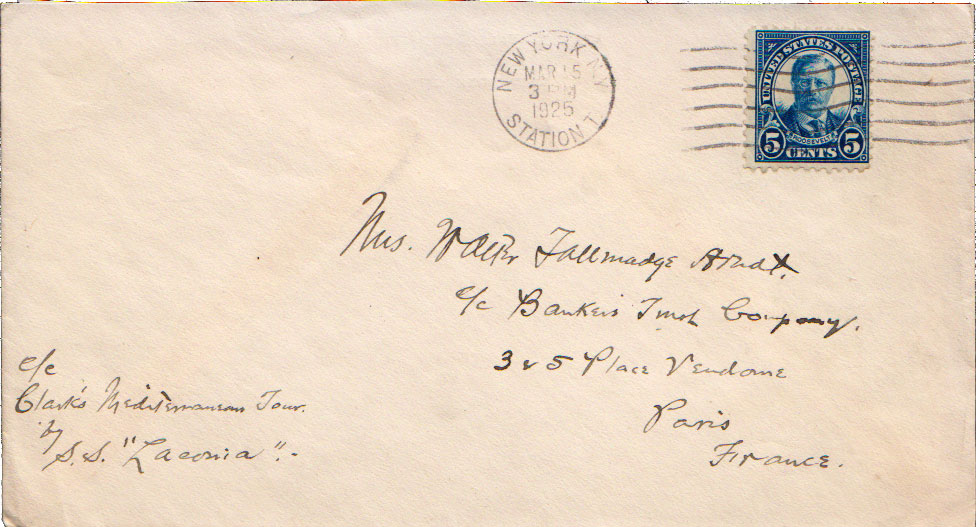 NEW YORK N.Y.
MAR 15
3 PM
1925
STATION T
UNITED STATES POSTAGE
ROOSEVELT
5 CENTS 5
Mrs. Walter Tallmadge Arndt.
c/o Bankers Trust Company.
3 & 5 Place Vendome
Paris
France.
c/o
Clark's Mediterranean Tour.
by
S.S. "Laconia".-